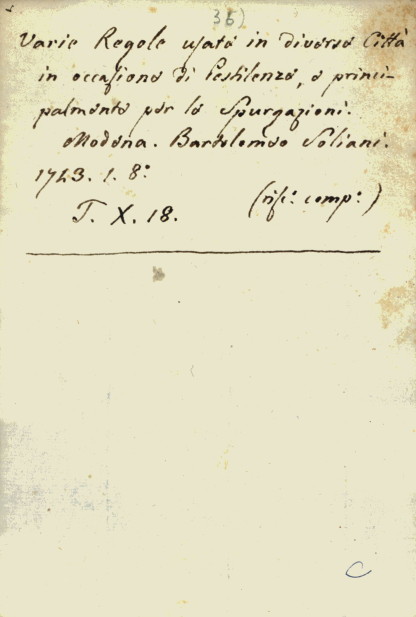 36)
Varie Regole usate in diverse Città
in occasione di Pestilenze, e princi-
palmente per le Spurgazioni.
Modena. Bartolomeo Soliani.
1743. 1. 8.º
(risc.º comp.º)
T. X. 18.
C